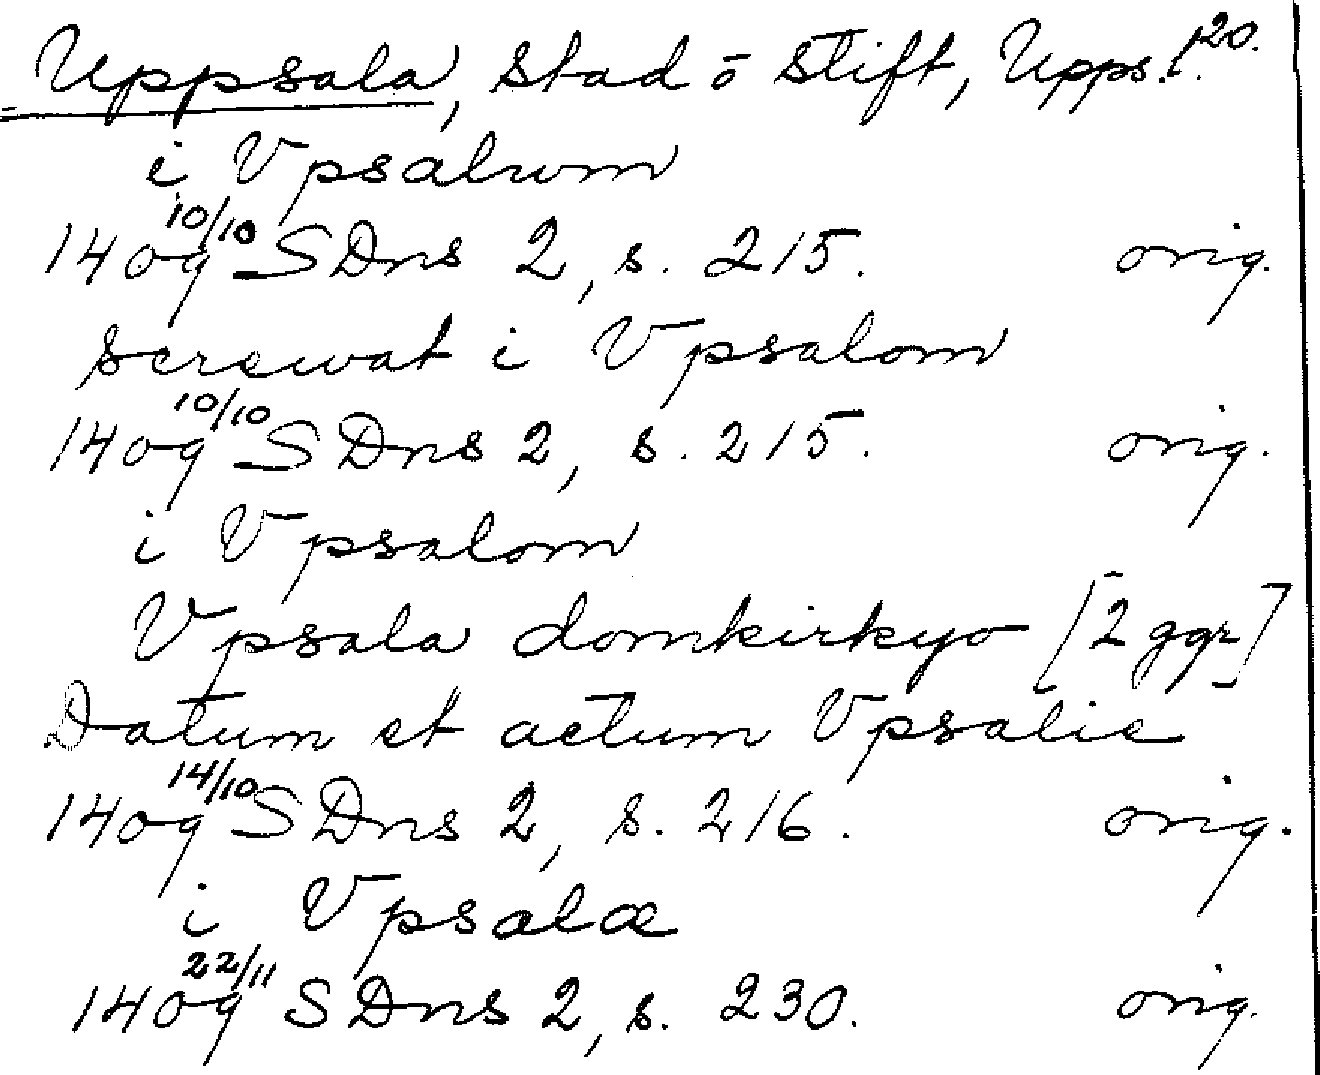 Uppsala, stad o stift, Upps. l. 20.
i Vpsalum
1409 10/10 SDns 2, s. 215. orig.
screwat i Vpsalom
1409 10/10 SDns 2, s. 215. orig.
i Vpsalom
Vpsala domkirkyo [2 ggr]
Datum et actum Vpsalie
1409 14/10 SDns 2, s. 216. orig.
i Vpsalæ
1409 22/11 SDns 2, s. 230. orig.